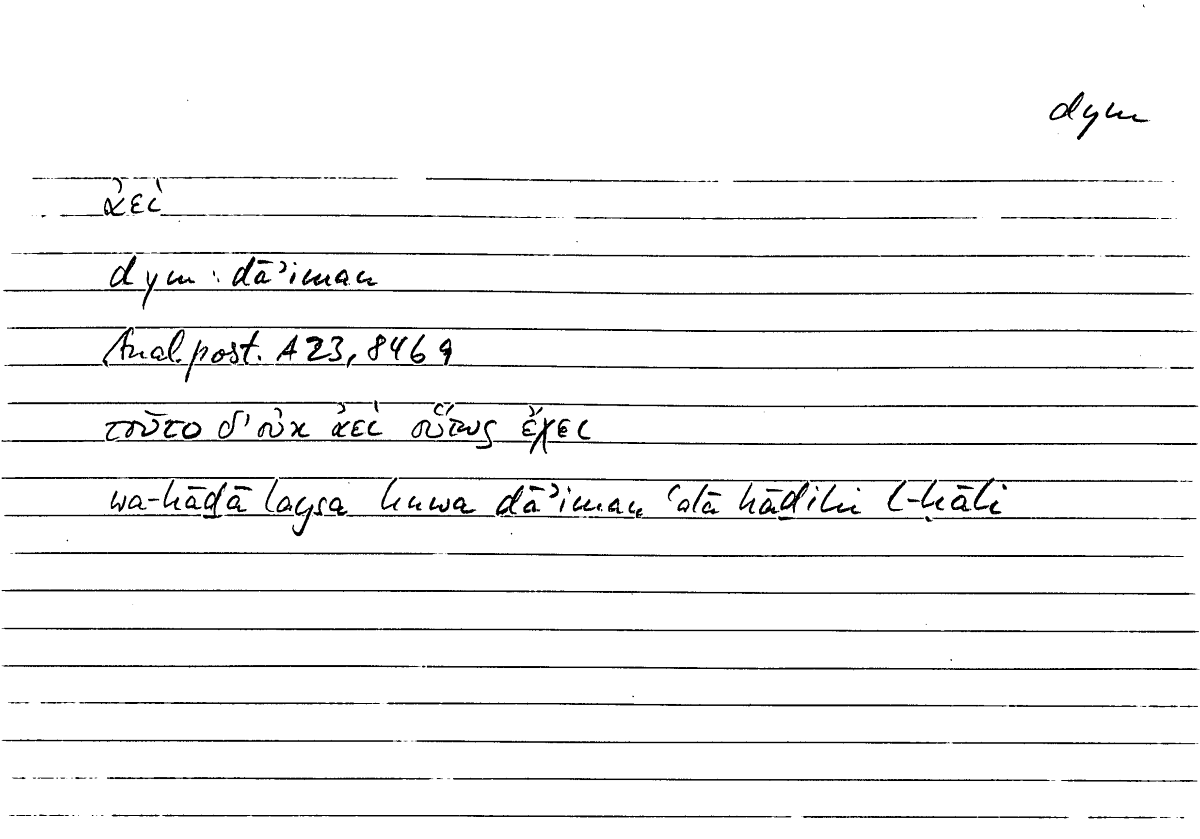 dym
ἀεὶ
dym : dāʾiman
Anal. post. A 23, 84b 9
τοῦτο δ' οὐκ ἀεὶ οὕτως ἔχει
wa-hāḏā laysa huwa dāʾiman ʿalā hāḏihi l-ḥāli